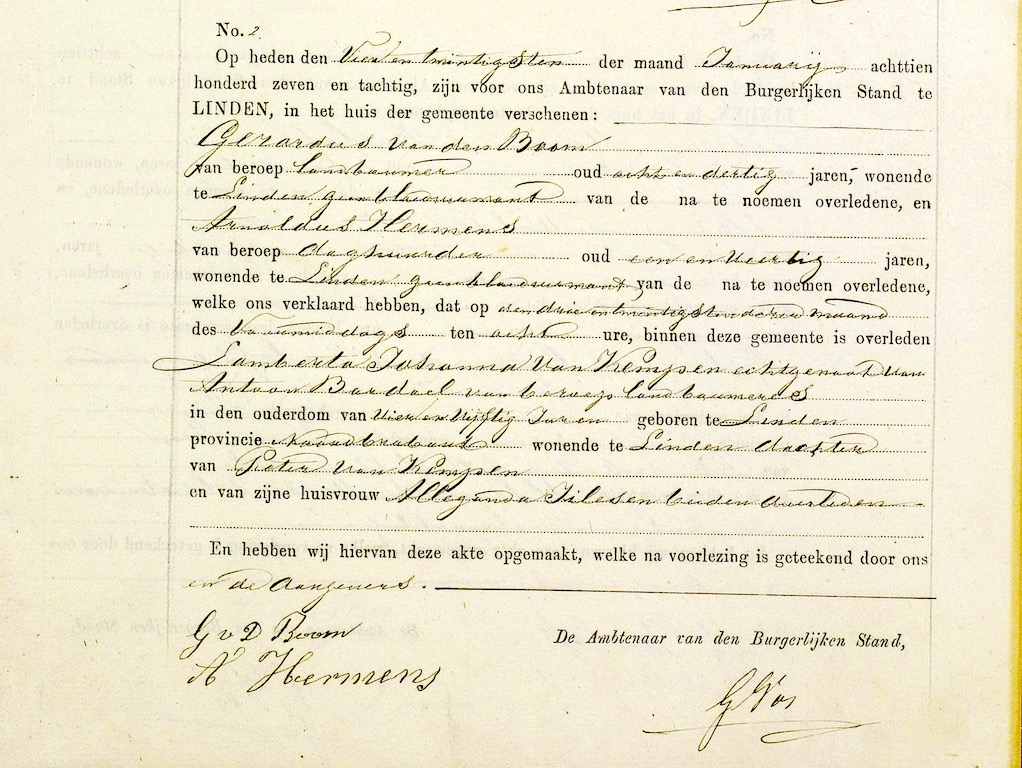 No. 2
Op heden den Vier en twintigsten der maand Januarij achttien
honderd zeven en tachtig, zijn voor ons Ambtenaar van den Burgerlijken Stand te
LINDEN, in het huis der gemeente verschenen:
Gerardus van den Boom
van beroep landbouwer oud acht en dertig jaren, wonende
te Linden, geen bloedverwant van de na te noemen overledene, en
Arnoldus Hermens
van beroep daghuurder oud een en veertig jaren,
wonende te Linden geen bloedverwant, van de na te noemen overledene,
welke ons verklaard hebben, dat op den drie en twintigsten dezer maand
des Voormiddags ten acht ure, binnen deze gemeente is overleden
Lamberta Johanna van Kempen echtgenoot van
Antoon Bardoel van beroep landbouweres
in den ouderdom van vier en vijftig Jaren geboren te Linden
provincie Noordbrabant wonende te Linden dochter
van Peter van Kempen
en van zijne huisvrouw Allegonda beiden overleden
En hebben wij hiervan deze akte opgemaakt, welke na voorlezing is geteekend door ons
en de aangevers.
G v D Boom
De Ambtenaar van den Burgerlijken Stand,
A Hermens
G Vos